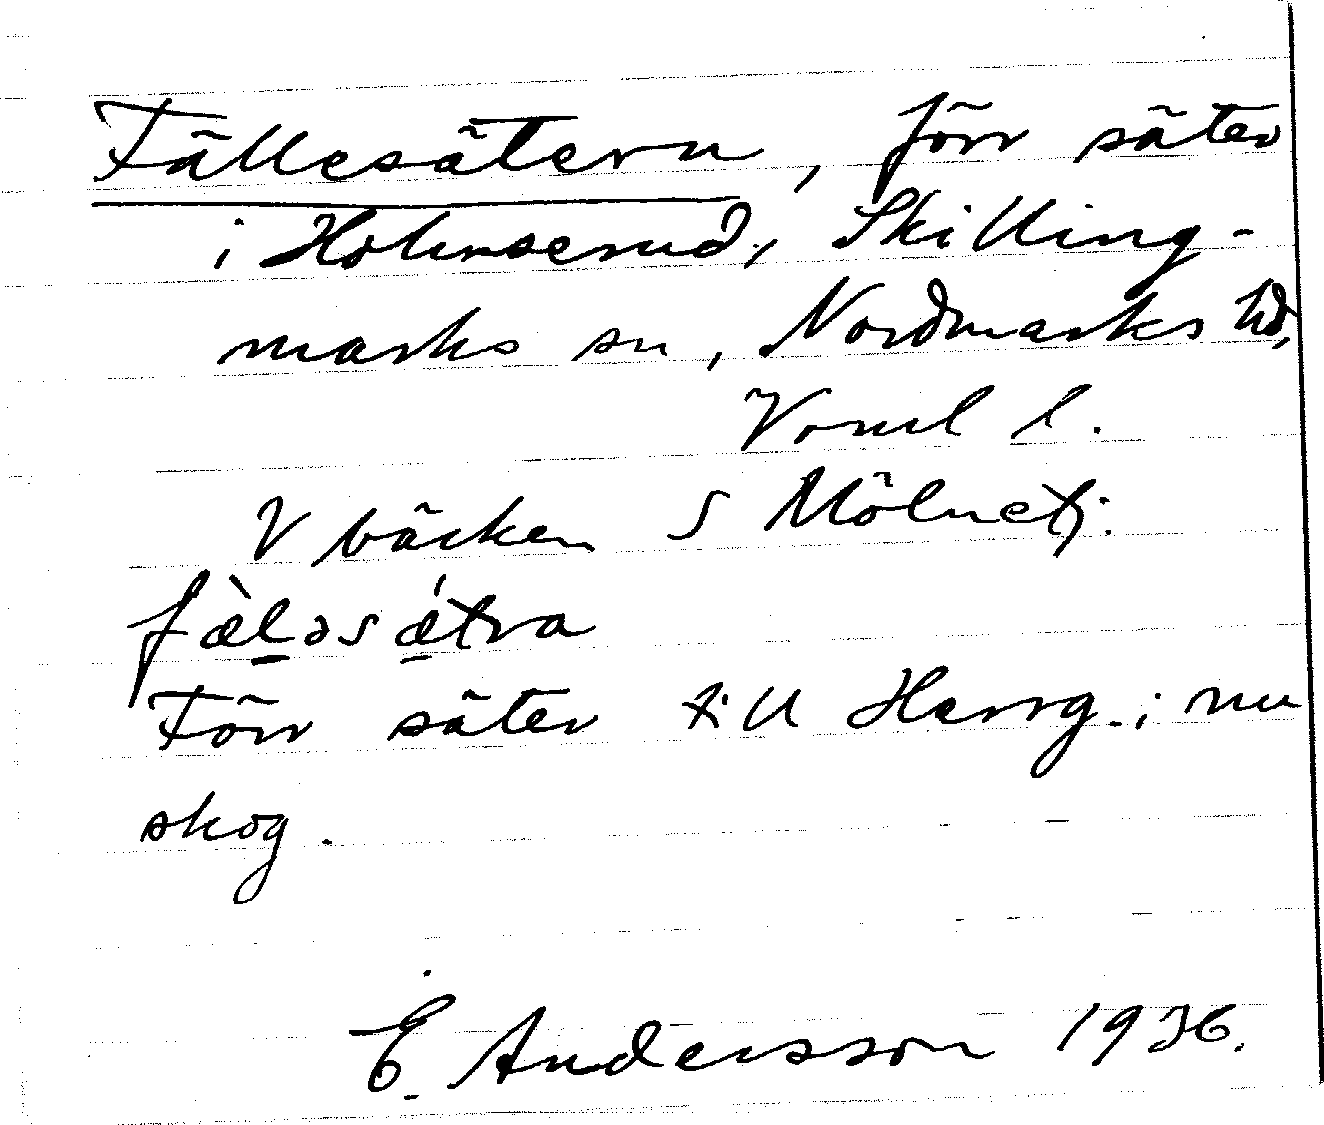 Fällesätern, förr säter
i Holmserud, Skilling-
marks sn, Nordmarks hd,
Verml l.
V bäcken S Mölnetj.
fæ̀l̲əsǽ̲tra
Förr säter till Herrg.; nu
skog.
E. Andersson 1936.